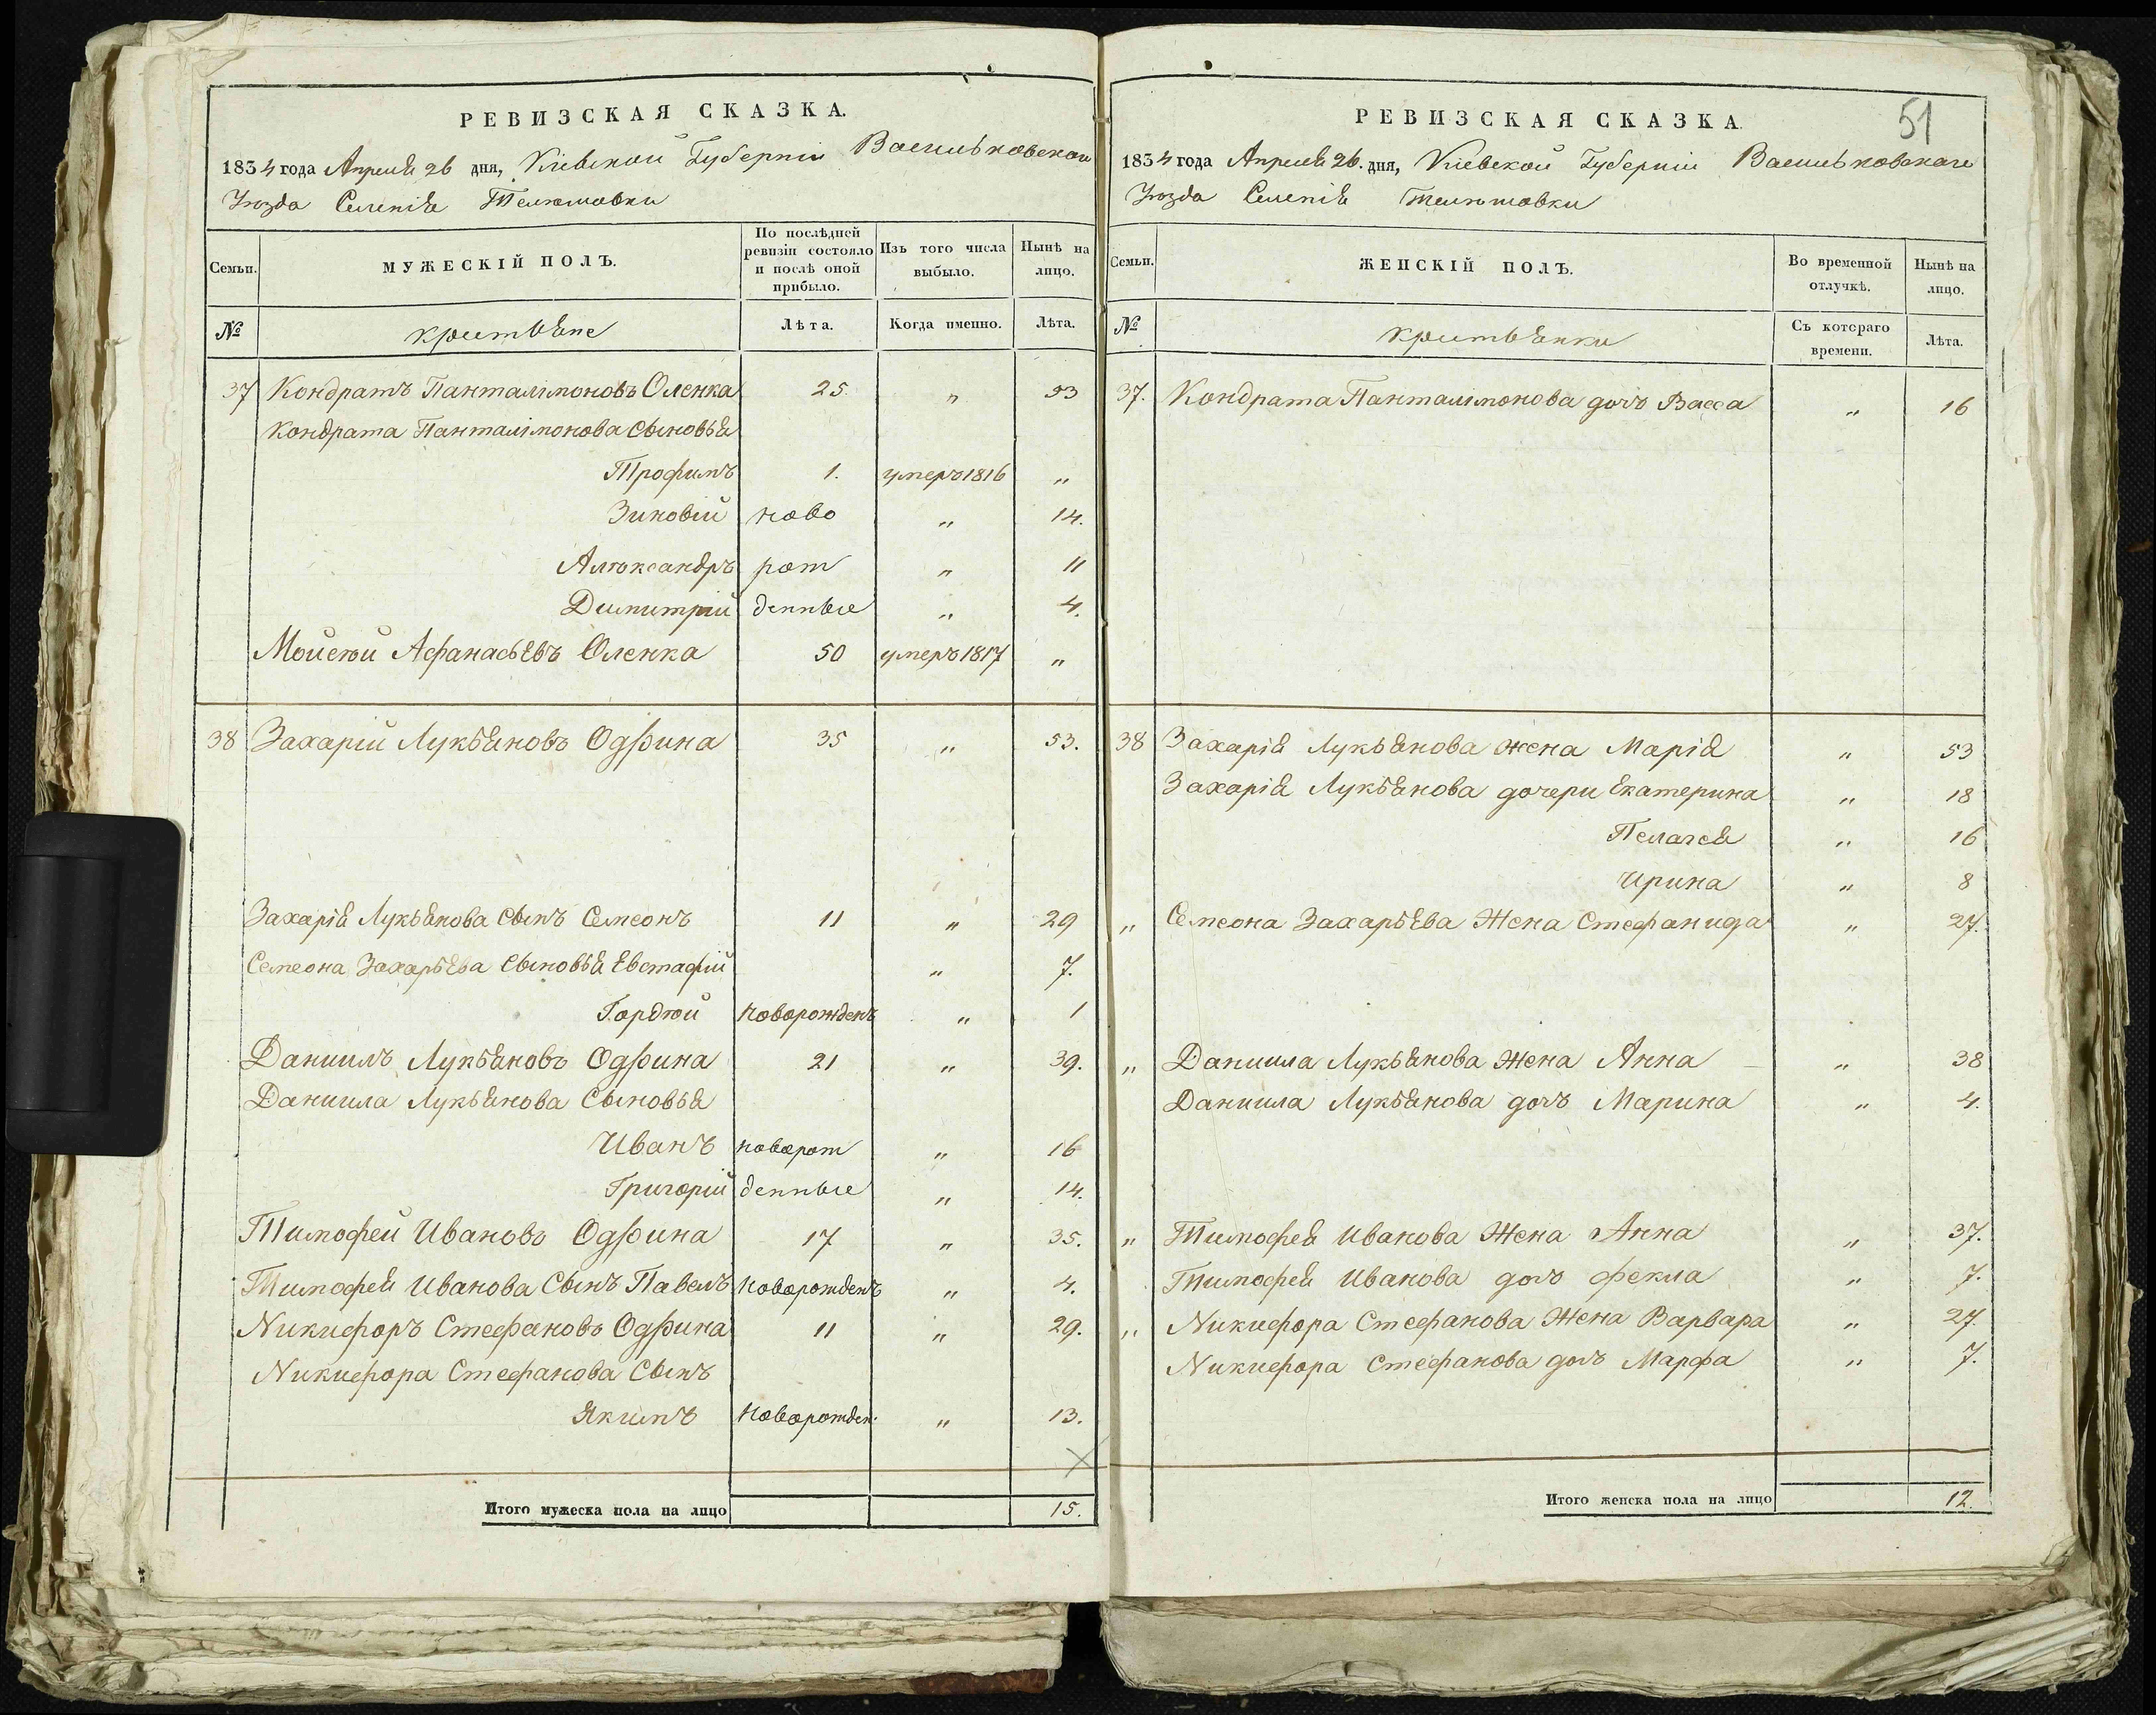 РЕВИЗСКАЯ СКАЗКА.
1834 года Апреля 26 дня, Кіевской Губерніи Васильковскаго
Уезда Селенія Телешовки
Семьи.
МУЖЕСКІЙ ПОЛЪ.
По послѣдней ревизіи состояло и послѣ оной прибыло.
Изъ того числа выбыло.
Нынѣ на лицо.
№
крестьяне
Лѣта.
Когда именно.
Лѣта.
37 Кондратъ Панталімоновъ Оленка 25 „ 53
Кондрата Панталімонова Сыновья
Трофимъ 1. умеръ 1816 „
Зиновій ново „ 14.
Алѣксандръ рот „ 11
Димитрій денные „ 4.
Мойсѣй Афанасьевъ Оленка 50 умеръ 1817 „
38 Захарій Лукьяновъ Одрина 35 „ 53.
Захарія Лукьянова Сынъ Семеонъ 11 „ 29
Семеона Захарьева Сыновья Евстафій „ 7.
Гордѣй Новорожденъ „ 1
Даниилъ Лукьяновъ Одрина 21 „ 39.
Даниила Лукьянова Сыновья
Иванъ новорот „ 16
Григорій денные „ 14.
Тимофей Ивановъ Одрина 17 „ 35.
Тимофея Иванова Сынъ Павелъ Новорожденъ „ 4.
Никифоръ Стефановъ Одрина 11 „ 29.
Никифора Стефанова Сынъ
Якимъ Новорожден. „ 13.
Итого мужеска пола на лицо 15.
51
РЕВИЗСКАЯ СКАЗКА.
1834 года Апреля 26. дня, Кіевской Губерніи Васильковскаго
Уезда Селенія Телешовки
Семьи.
ЖЕНСКІЙ ПОЛЪ.
Во временной отлучкѣ.
Нынѣ на лицо.
№
крестьянки
Съ котораго времени.
Лѣта.
37. Кондрата Панталімонова дочъ Васса „ 16
38 Захарія Лукьянова жена Марія „ 53
Захарія Лукьянова дочери Екатерина „ 18
Пелагея „ 16
Ирина „ 8
„ Семеона Захарьева Жена Стефанида „ 27.
„ Даниила Лукьянова Жена Анна „ 38
Даниила Лукьянова дочъ Марина „ 4.
„ Тимофея Иванова Жена Анна „ 37.
Тимофея Иванова дочъ Фекла „ 7.
„ Никифора Стефанова Жена Варвара „ 27.
Никифора Стефанова дочъ Марфа „ 7.
Итого женска пола на лицо 12.